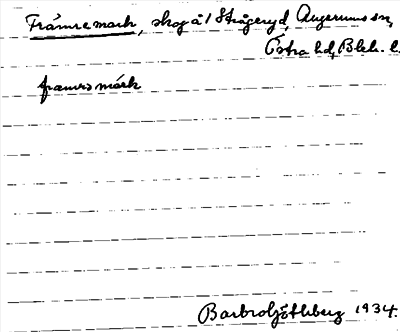 Främre mark, skog å 1 Stångeryd, Augerums sn,
Östra hd, Blek. l.
framrs márk
Barbro Götlberg 1934.